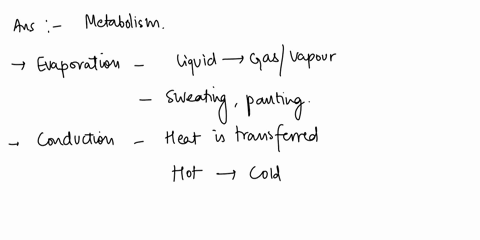 Ans :- Metabolism.
→ Evaporation - Liquid → Gas/Vapour
- Sweating, panting.
→ Conduction - Heat is transferred
Hot → Cold